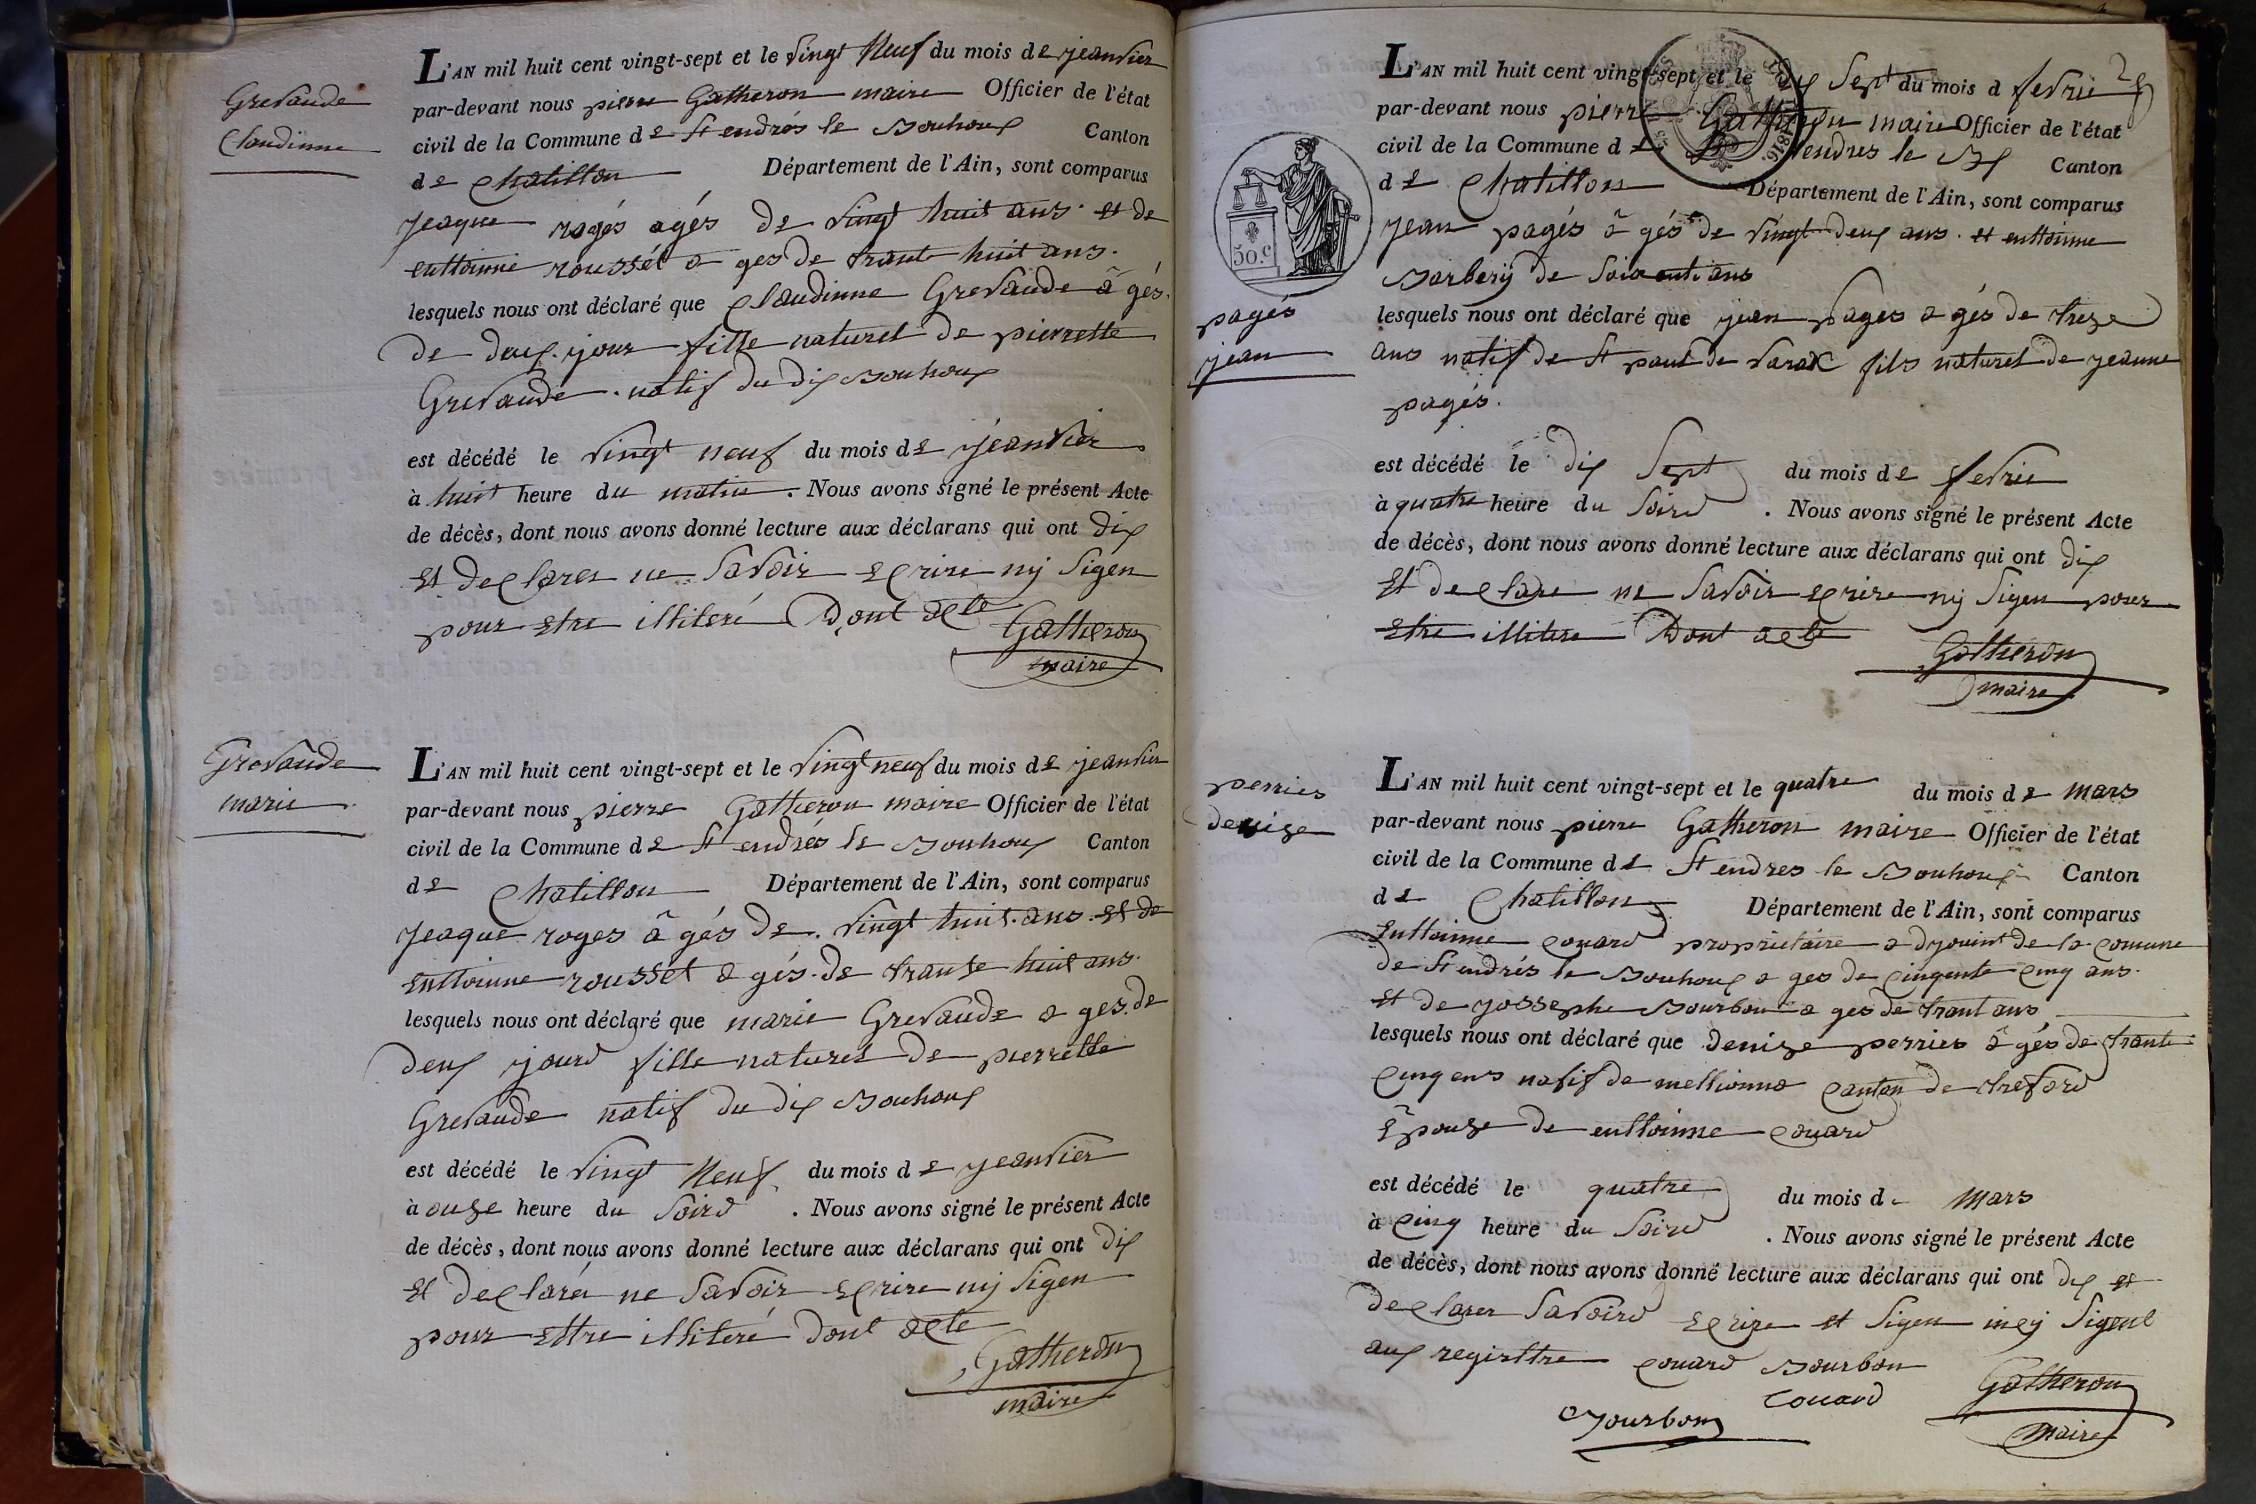 Grevaude
Claudinne
L'AN mil huit cent vingt-sept et le vingt Neuf du mois de jeanvier
par-devant nous pierre Gatheron maire Officier de l'état
civil de la Commune de St endrés le Bouhoux Canton
de Chatillon Département de l'Ain, sont comparus
jeaque rogés agés de vingt huit ans et de
enttoinne roussét a ges de trante huit ans.
lesquels nous ont déclaré que Claudinne Grevaude â gés
de deux jour fille naturel de pierrette
Grevaude natif du dix Bouhoux
est décédé le vingt neuf du mois de jeanvier
à huit heure du matin. Nous avons signé le présent Acte
de décès, dont nous avons donné lecture aux déclarans qui ont dix
et declarer ne savoir ecrire nij sigen
pour etre illiteré Dont acte
Gatheron
maire
Grevaude
marie
L'AN mil huit cent vingt-sept et le vingt neuf du mois de jeanvier
par-devant nous pierre Gatheron maire Officier de l'état
civil de la Commune de St endrés le Bouhoux Canton
de Chatillon Département de l'Ain, sont comparus
jeaque roges â gés de vingt huit ans et de
enttoinne rousset a gés de trante huit ans.
lesquels nous ont déclaré que marie Grevaude a ges de
deux jourd fille naturel de pierrette
Grevaude natif du dix Bouhoux
est décédé le vingt Neuf du mois de jeanvier
à onze heure du soird. Nous avons signé le présent Acte
de décès, dont nous avons donné lecture aux déclarans qui ont dix
et declarér ne savoir ecrire nij sigen
pour ettre illiteré dont acte
Gatheron
maire
50.c
pagés
jean
L'AN mil huit cent vingt-sept et le dix sept du mois d fevrie
par-devant nous pierre Gatheron maire Officier de l'état
civil de la Commune de St endres le Bx Canton
de Chatillon Département de l'Ain, sont comparus
jean pagés â gés de vingt deux ans et enttoinne
Barberij de soixante ans
lesquels nous ont déclaré que jean pages a gés de treze
ans natif de St paul de varax fils naturel de jeanne
pagés.
est décédé le dix sept du mois de fevrie
à quatre heure du soird. Nous avons signé le présent Acte
de décès, dont nous avons donné lecture aux déclarans qui ont dix
et declare ne savoir ecrire nij sigen pour
etre illitere Dont acte
Gatheron
maire
perries
denize
L'AN mil huit cent vingt-sept et le quatre du mois de mars
par-devant nous pierre Gatheron maire Officier de l'état
civil de la Commune de St endres le Bouhoux Canton
de Chatillon Département de l'Ain, sont comparus
enttoinne couard proprietaire adjouint de la comune
de St endrés le Bouhoux a ges de cinqente cinq ans.
et de jossephe Bourbon a ges de trant ans
lesquels nous ont déclaré que denize perries â gés de trante
cinq ens natif de mellionna canton de treford
êpouze de enttoinne couard
est décédé le quatre du mois de mars
à cinq heure du soird. Nous avons signé le présent Acte
de décès, dont nous avons donné lecture aux déclarans qui ont dix et
declarer savoird ecrire et sigen inej sigent
aux registtre couard Bourbon
couard
Bourbon
Gatheron
maire